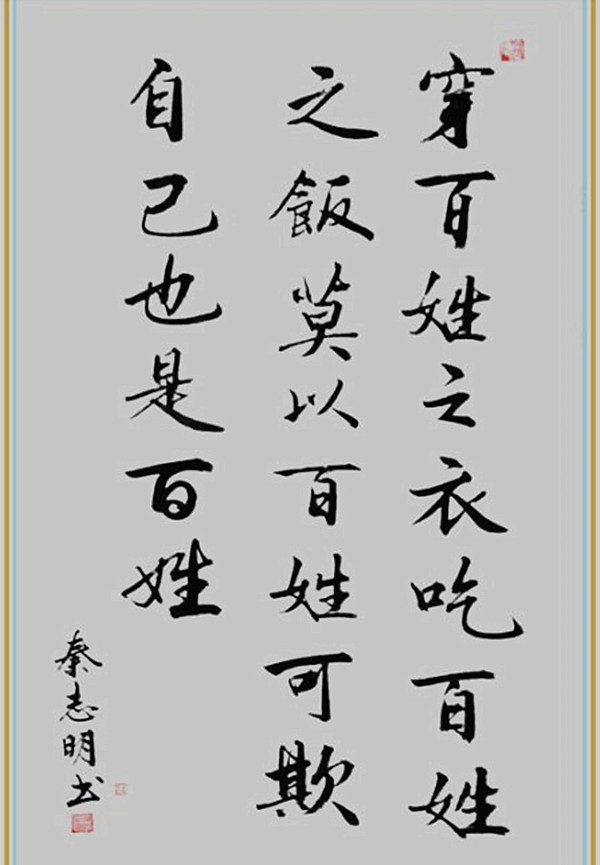 穿百姓之衣吃百姓
之飯莫以百姓可欺
自己也是百姓
秦志明书